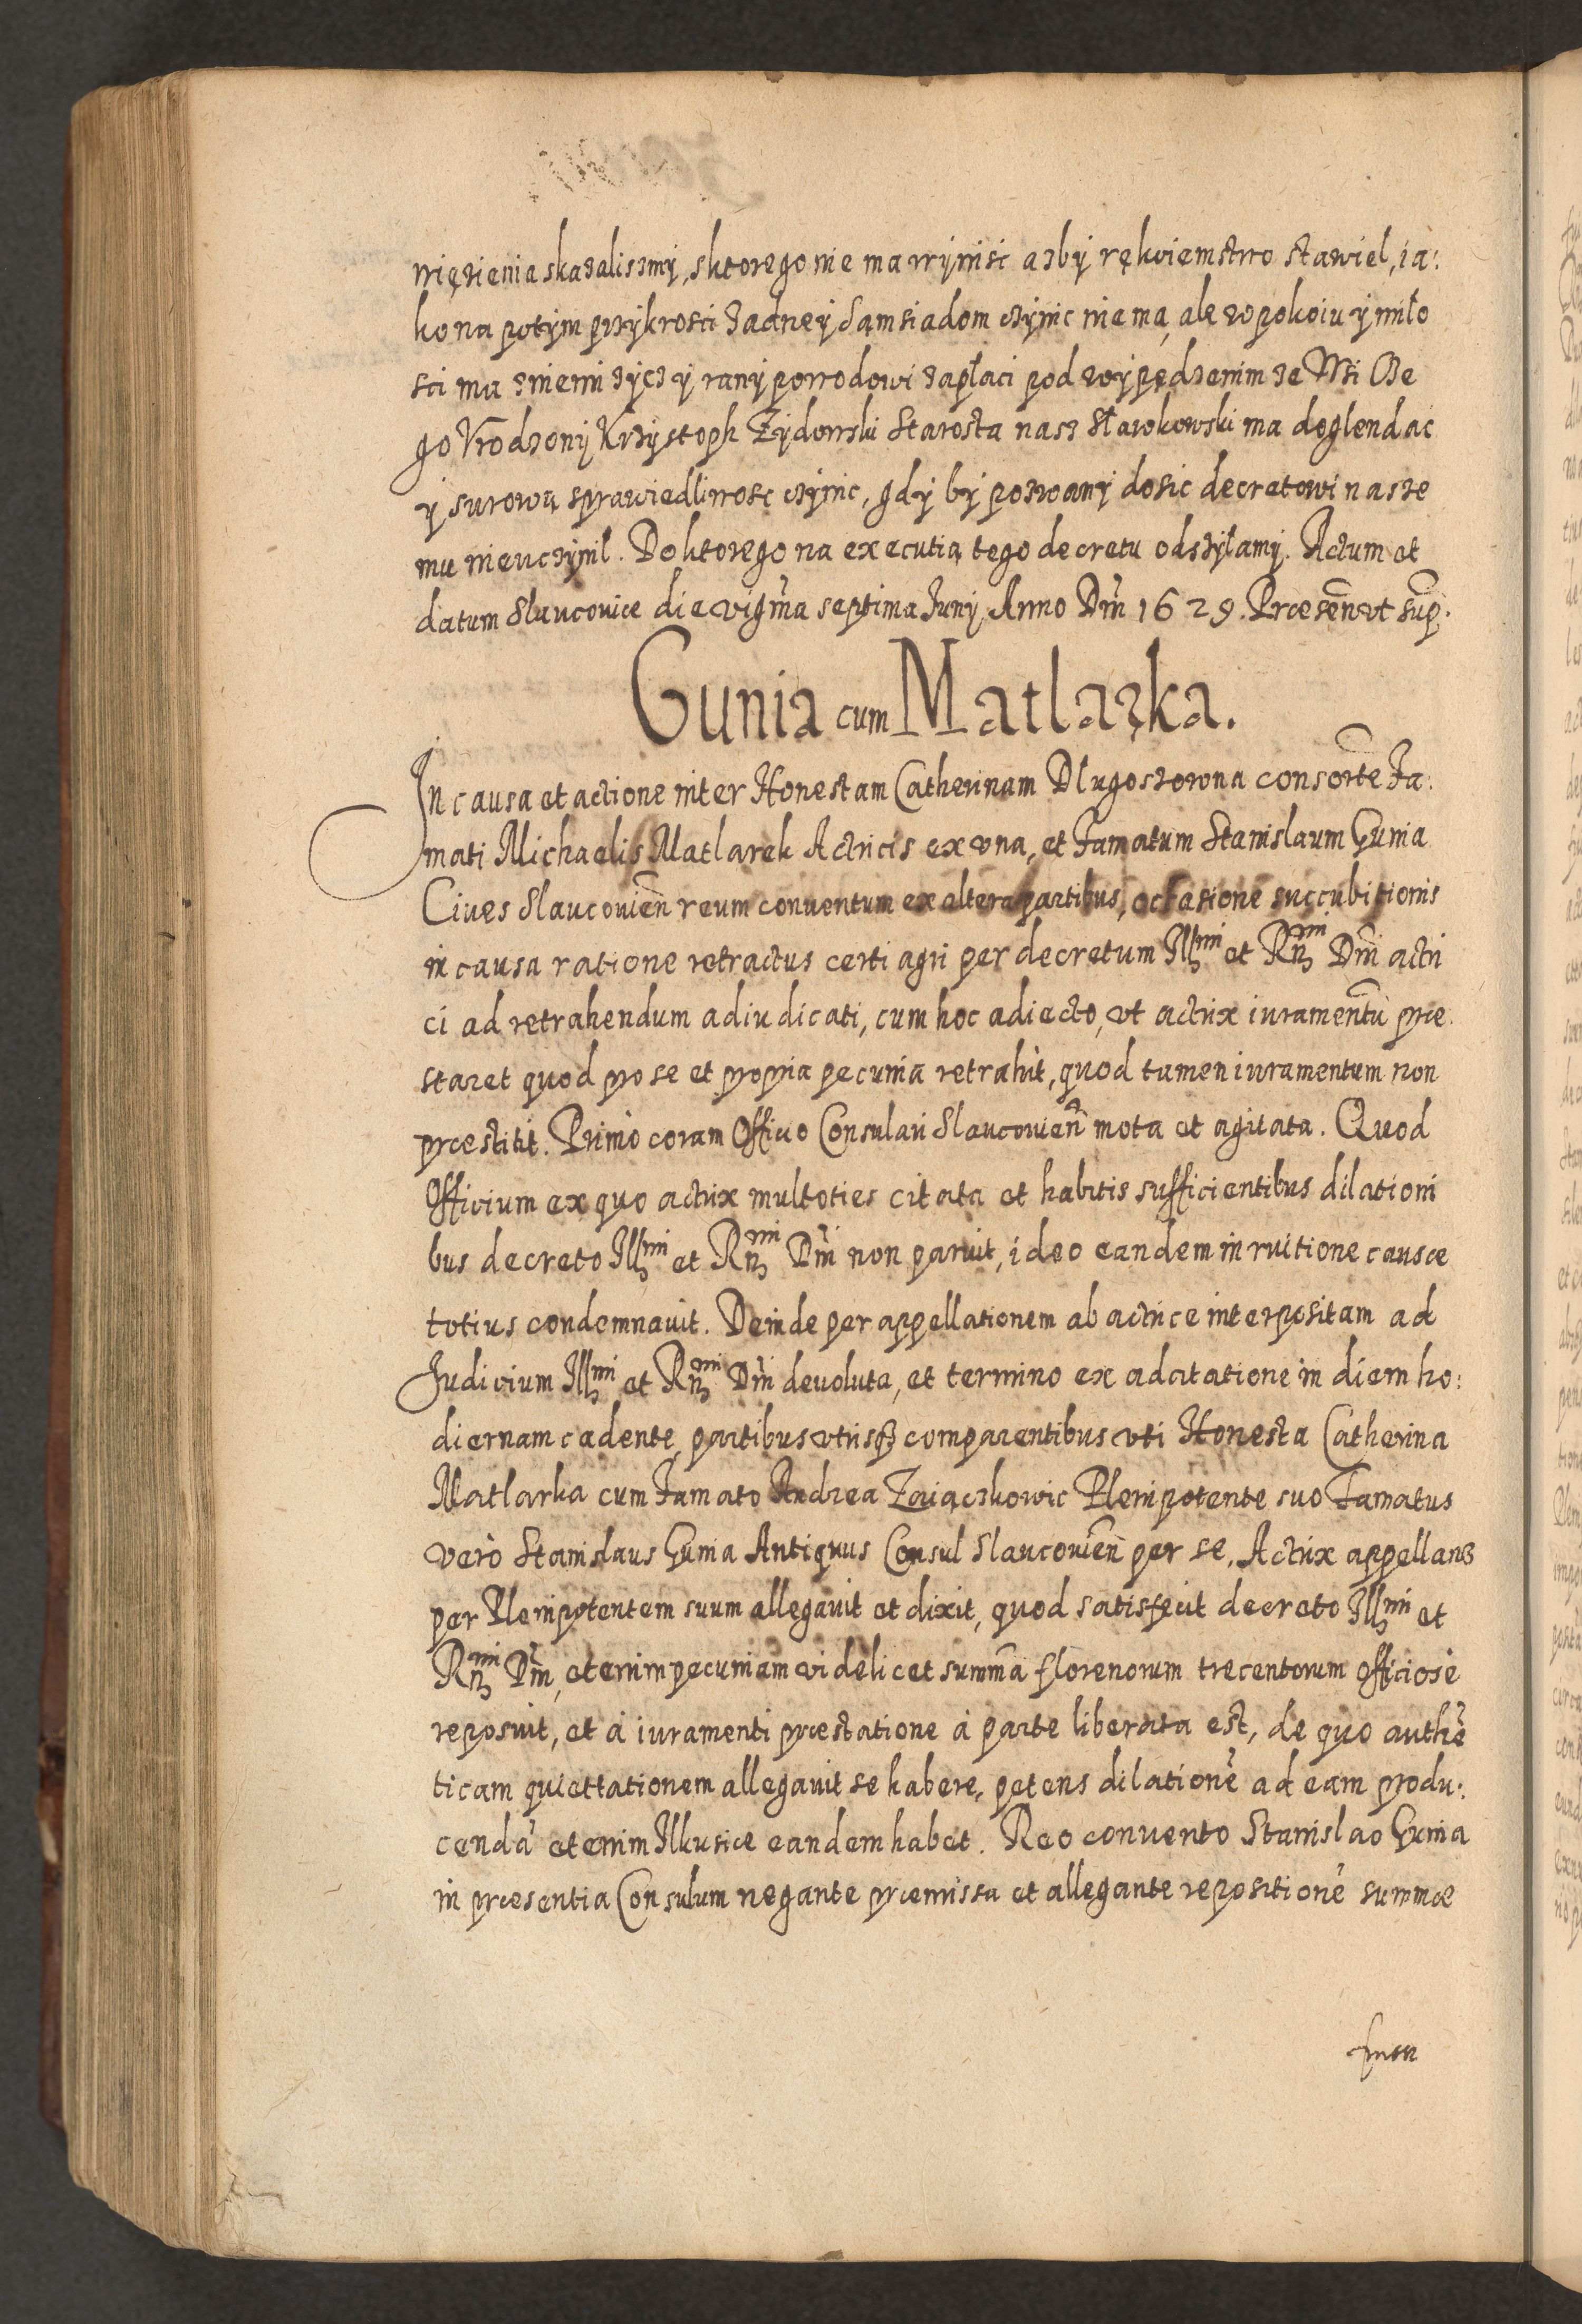 więzienia skazalismy, z ktorego nie ma wyniść azby rękoiemstwo stawiel, ia:
ko na potym przykrosci zadney Sąmsiadom czynic niema, ale w pokoiu y miło
sci ma z niemi zyc z y rany powodowi zapłaci pod wypędzenim ze Wsi Cze
go Vrodzony Krzysztoph Zydowski Starosta nasz Sławkowski ma doglendac
y surową sprawiedliwosc czynic, gdy by pozwany dosic decretowi nasze
mu nieuczynil. Do ktorego na executią tego decretu odszyłamy. Actum et
datum Slaucouiæ die vigm̃a septima Juny Anno Dm̃ 1629. Præsẽn vt sup̃.
Gunia cum Matlaꝛka.
In causa et actione inter Honestam Catherinam Dlugoszowna consortẽ Fa:
mati Michaelis Matlarek Actricis ex vna, et Famatum Stanislaum Gunia
Ciues Slaucouieñ reum conuentum ex altera partibus, occasione succubitionis
in causa ratione retractus certi agri per decretum Illmi et Rmi Dm̃ actri
ci ad retrahendum adiudicati, cum hoc adiecto, vt actrix iuramentũ præ
staret quod pro se et propria pecunia retrahit, quod tamen iuramentum non
præstitit. Primò coram Officio Consulari Slaucouieñ mota et agitata. Quod
Officium ex quo actrix multoties citata et habitis sufficientibus dilationi
bus decreto Illmi et Rmi Dm̃ non paruit, ideo eandem in ruitione causæ
totius condemnauit. Deinde per appellationem ab actrice interpositam ad
Iudicium Illmi et Rmi Dm̃ deuoluta, et termino ex adcitatione in diem ho:
diernam cadente, partibus vtrisqꝫ comparentibus vti Honesta Catherina
Matlarka cum Famato Andrea Zaiączkowic Plenipotente suo Famatus
verò Stanislaus Gunia Antiquus Consul Slaucouieñ per se, Actrix appellans
per Plenipotentem suum allegauit et dixit, quod satisfecit decreto Illmi et
Rmi Dm̃, etenim pecuniam videlicet sum̃a florenorum trecentorum officiosè
reposuit, et à iuramenti præstatione à parte liberata est, de quo authẽ
ticam quiettationem allegauit se habere, petens dilationẽ ad eam produ:
cendã etenim Ilkusiæ eandem habet. Reo conuento Stanislao Gunia
in præsentia Consulum negante præmissa et allegante repositionẽ summæ